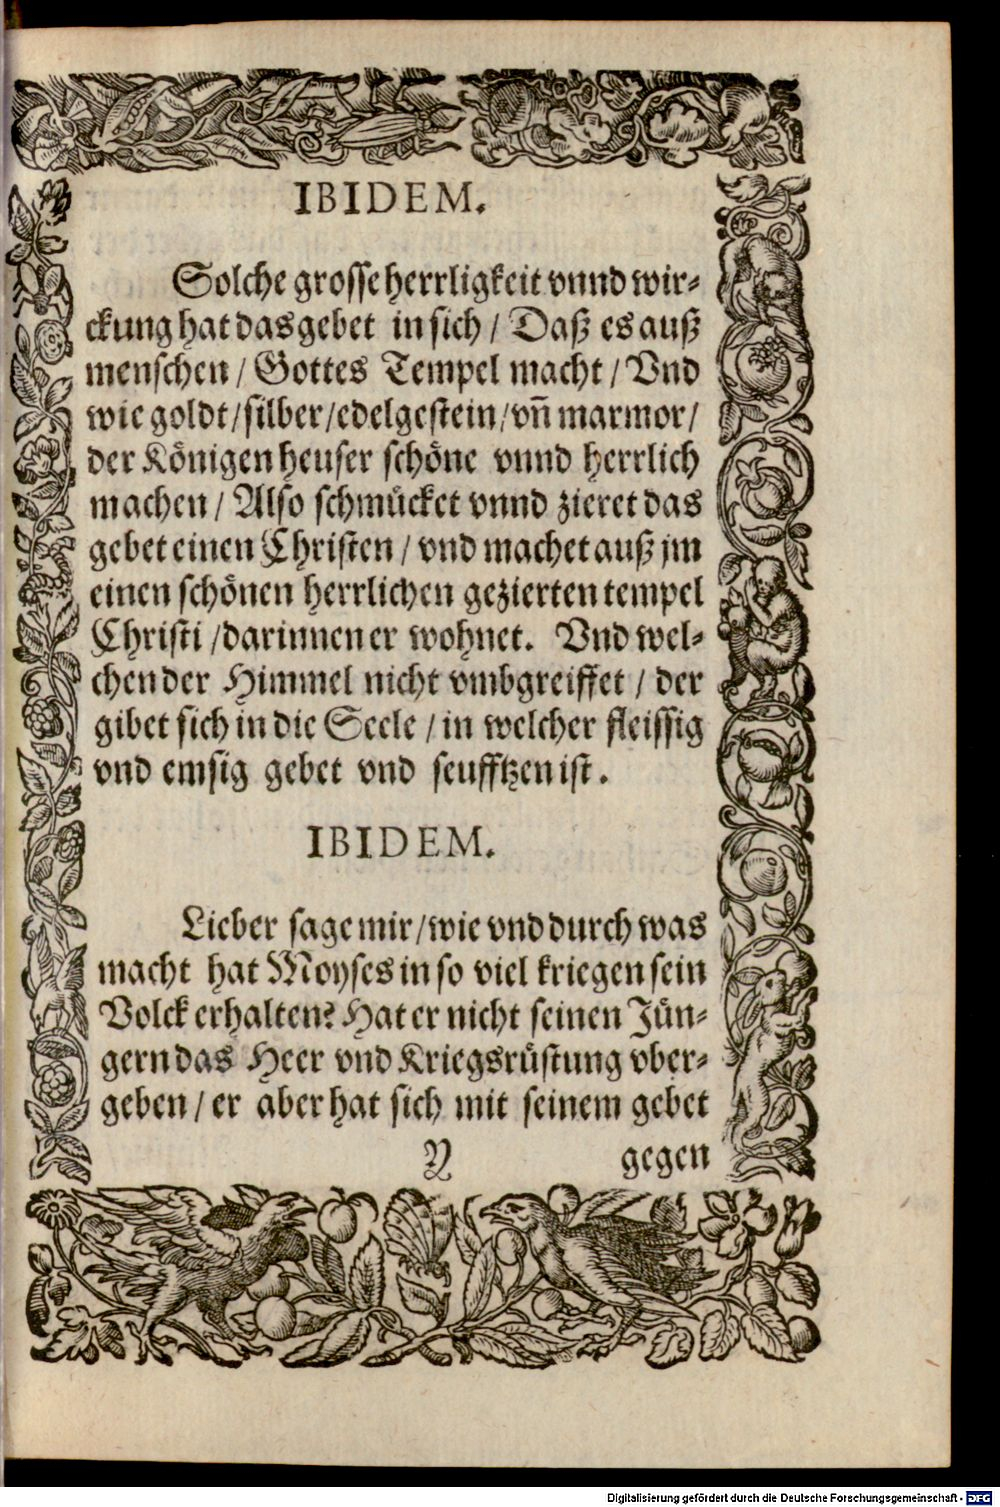 IBIDEM.
Solche grosse herrligkeit vnnd wir-
ckung hat das gebet in sich / Daß es auß
menschen / Gottes Tempel macht / Vnd
wie goldt / silber / edelgestein / vñ marmor /
der Königen heuser schöne vnnd herrlich
machen / Also schmücket vnnd zieret das
gebet einen Christen / vnd machet auß jm
einen schönen herrlichen gezierten tempel
Christi / darinnen er wohnet. Vnd wel-
chen der Himmel nicht vmbgreiffet / der
gibet sich in die Seele / in welcher fleissig
vnd emsig gebet vnd seufftzen ist.
IBIDEM.
Lieber sage mir / wie vnd durch was
macht hat Moyses in so viel kriegen sein
Volck erhalten? Hat er nicht seinen Jün-
gern das Heer vnd Kriegsrüstung vber-
geben / er aber hat sich mit seinem gebet
Y gegen
Digitalisierung gefördert durch die Deutsche Forschungsgemeinschaft - DFG